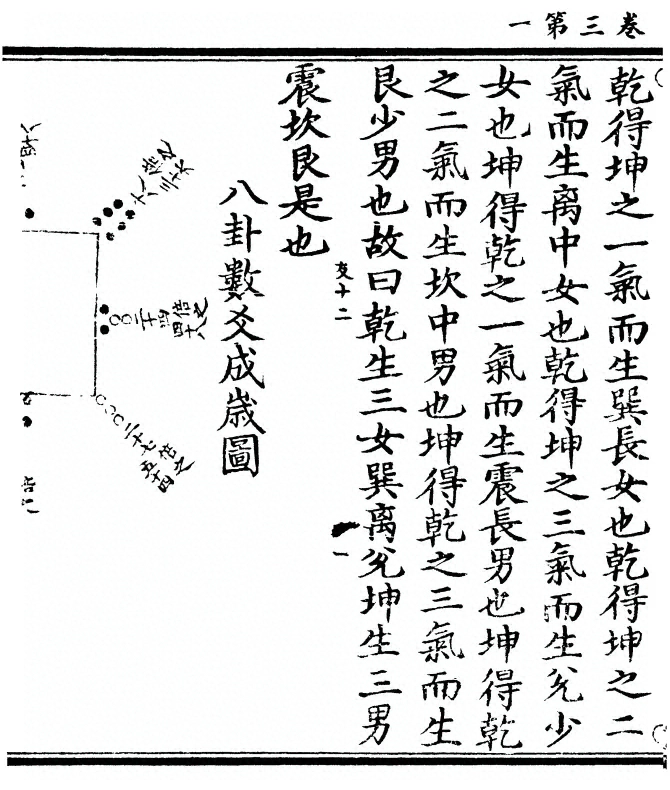 卷三第一
乾得坤之一氣而生巽長女也乾得坤之二
氣而生离中女也乾得坤之三氣而生兊少
女也坤得乾之一氣而生震長男也坤得乾
之二氣而生坎中男也坤得乾之三氣而生
艮少男也故曰乾生三女巽离兊坤生三男
震坎艮是也
八卦數爻成歲圖
二十四
倍之
四十八
二十七
倍之
五十四